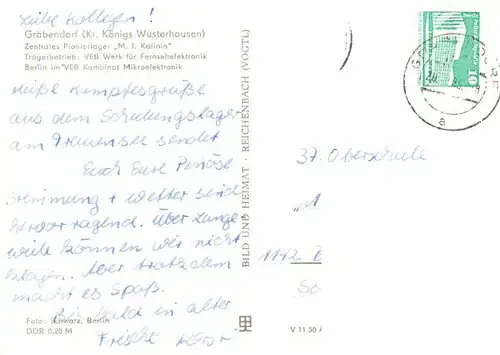 Liebe Kollegen!
Gröbendorf (Kr. Königs Wusterhausen)
Zentrales Pionierlager „M. I. Kalinin"
Trägerbetrieb: VEB Werk für Fernsehelektronik
Berlin im VEB Kombinat Mikroelektronik
Heiße Kampfesgrüße
aus dem Schulungslager
am Frauensee sendet
Euch Eure
Stimmung + Wetter sind
hervorragend. Über Lange
weile können wir nicht
klagen. Aber trotzdem
macht es Spaß.
Bis bald in alter
Foto: Schwarz, Berlin
DDR 0,20 M
Frische
BILD UND HEIMAT · REICHENBACH (VOGTL)
10
a
37. Oberschule
1142 B
V 11 50